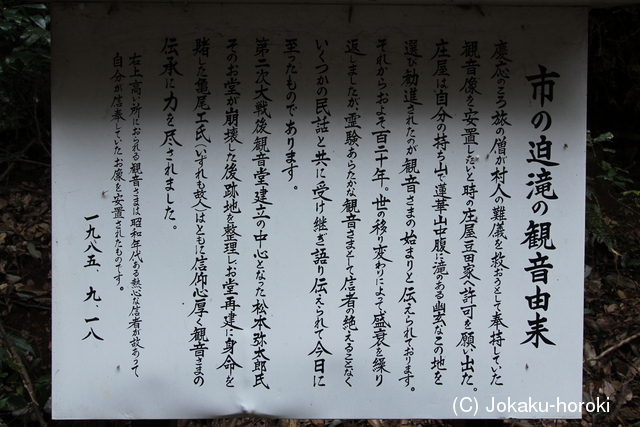 市の迫滝の観音由来
慶応のころ旅の僧が村人の難儀を救おうとして奉持していた
観音像を安置したいと時の庄屋豆田家へ許可を願い出た。
庄屋は自分の持ち山で蓮華山中腹に滝のある幽玄なこの地を
選び勧進されたのが観音さまの始まりと伝えられております。
それからおよそ百二十年。世の移り変わりによって盛衰を繰り
返しましたが、霊験あらたかな観音さまとして信者の絶えることなく
いくつかの民話と共に受け継ぎ語り伝えられて今日に
至ったものであります。
第二次大戦後観音堂建立の中心となった松本弥太郎氏
そのお堂が崩壊した後跡地を整理しお堂再建に身命を
賭した亀尾工氏(いずれも故人)はともに信仰心厚く観音さまの
伝承に力を尽されました。
右上高い所におられる観音さまは昭和年代ある熱心な信者が故あって
自分が信奉していたお像を安置されたものです。
一九八五、九、一八
(C) Jokaku-horoki